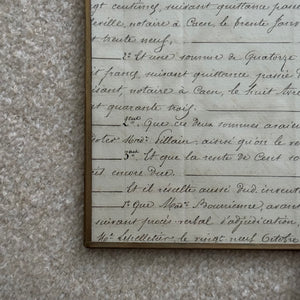 gt centimes, suivant quittance passée
ville, notaire à Caen, le trente Jan
t trente neuf,
2° Et une somme de Quatorze
it francs, suivant quittance passée d
isant, notaire à Caen, le huit Avr
t quarante trois.
2ent. Que ces deux sommes avaient
Made Villain, ainsi qu'on le
3ent. Et que la rente de Cent
it encore due.
Et il résulte aussi dud. inven
1° que Made Bourienne, avant
suivant procès verbal d'adjudication
Me Lepelletier, le vingt neuf Octobre